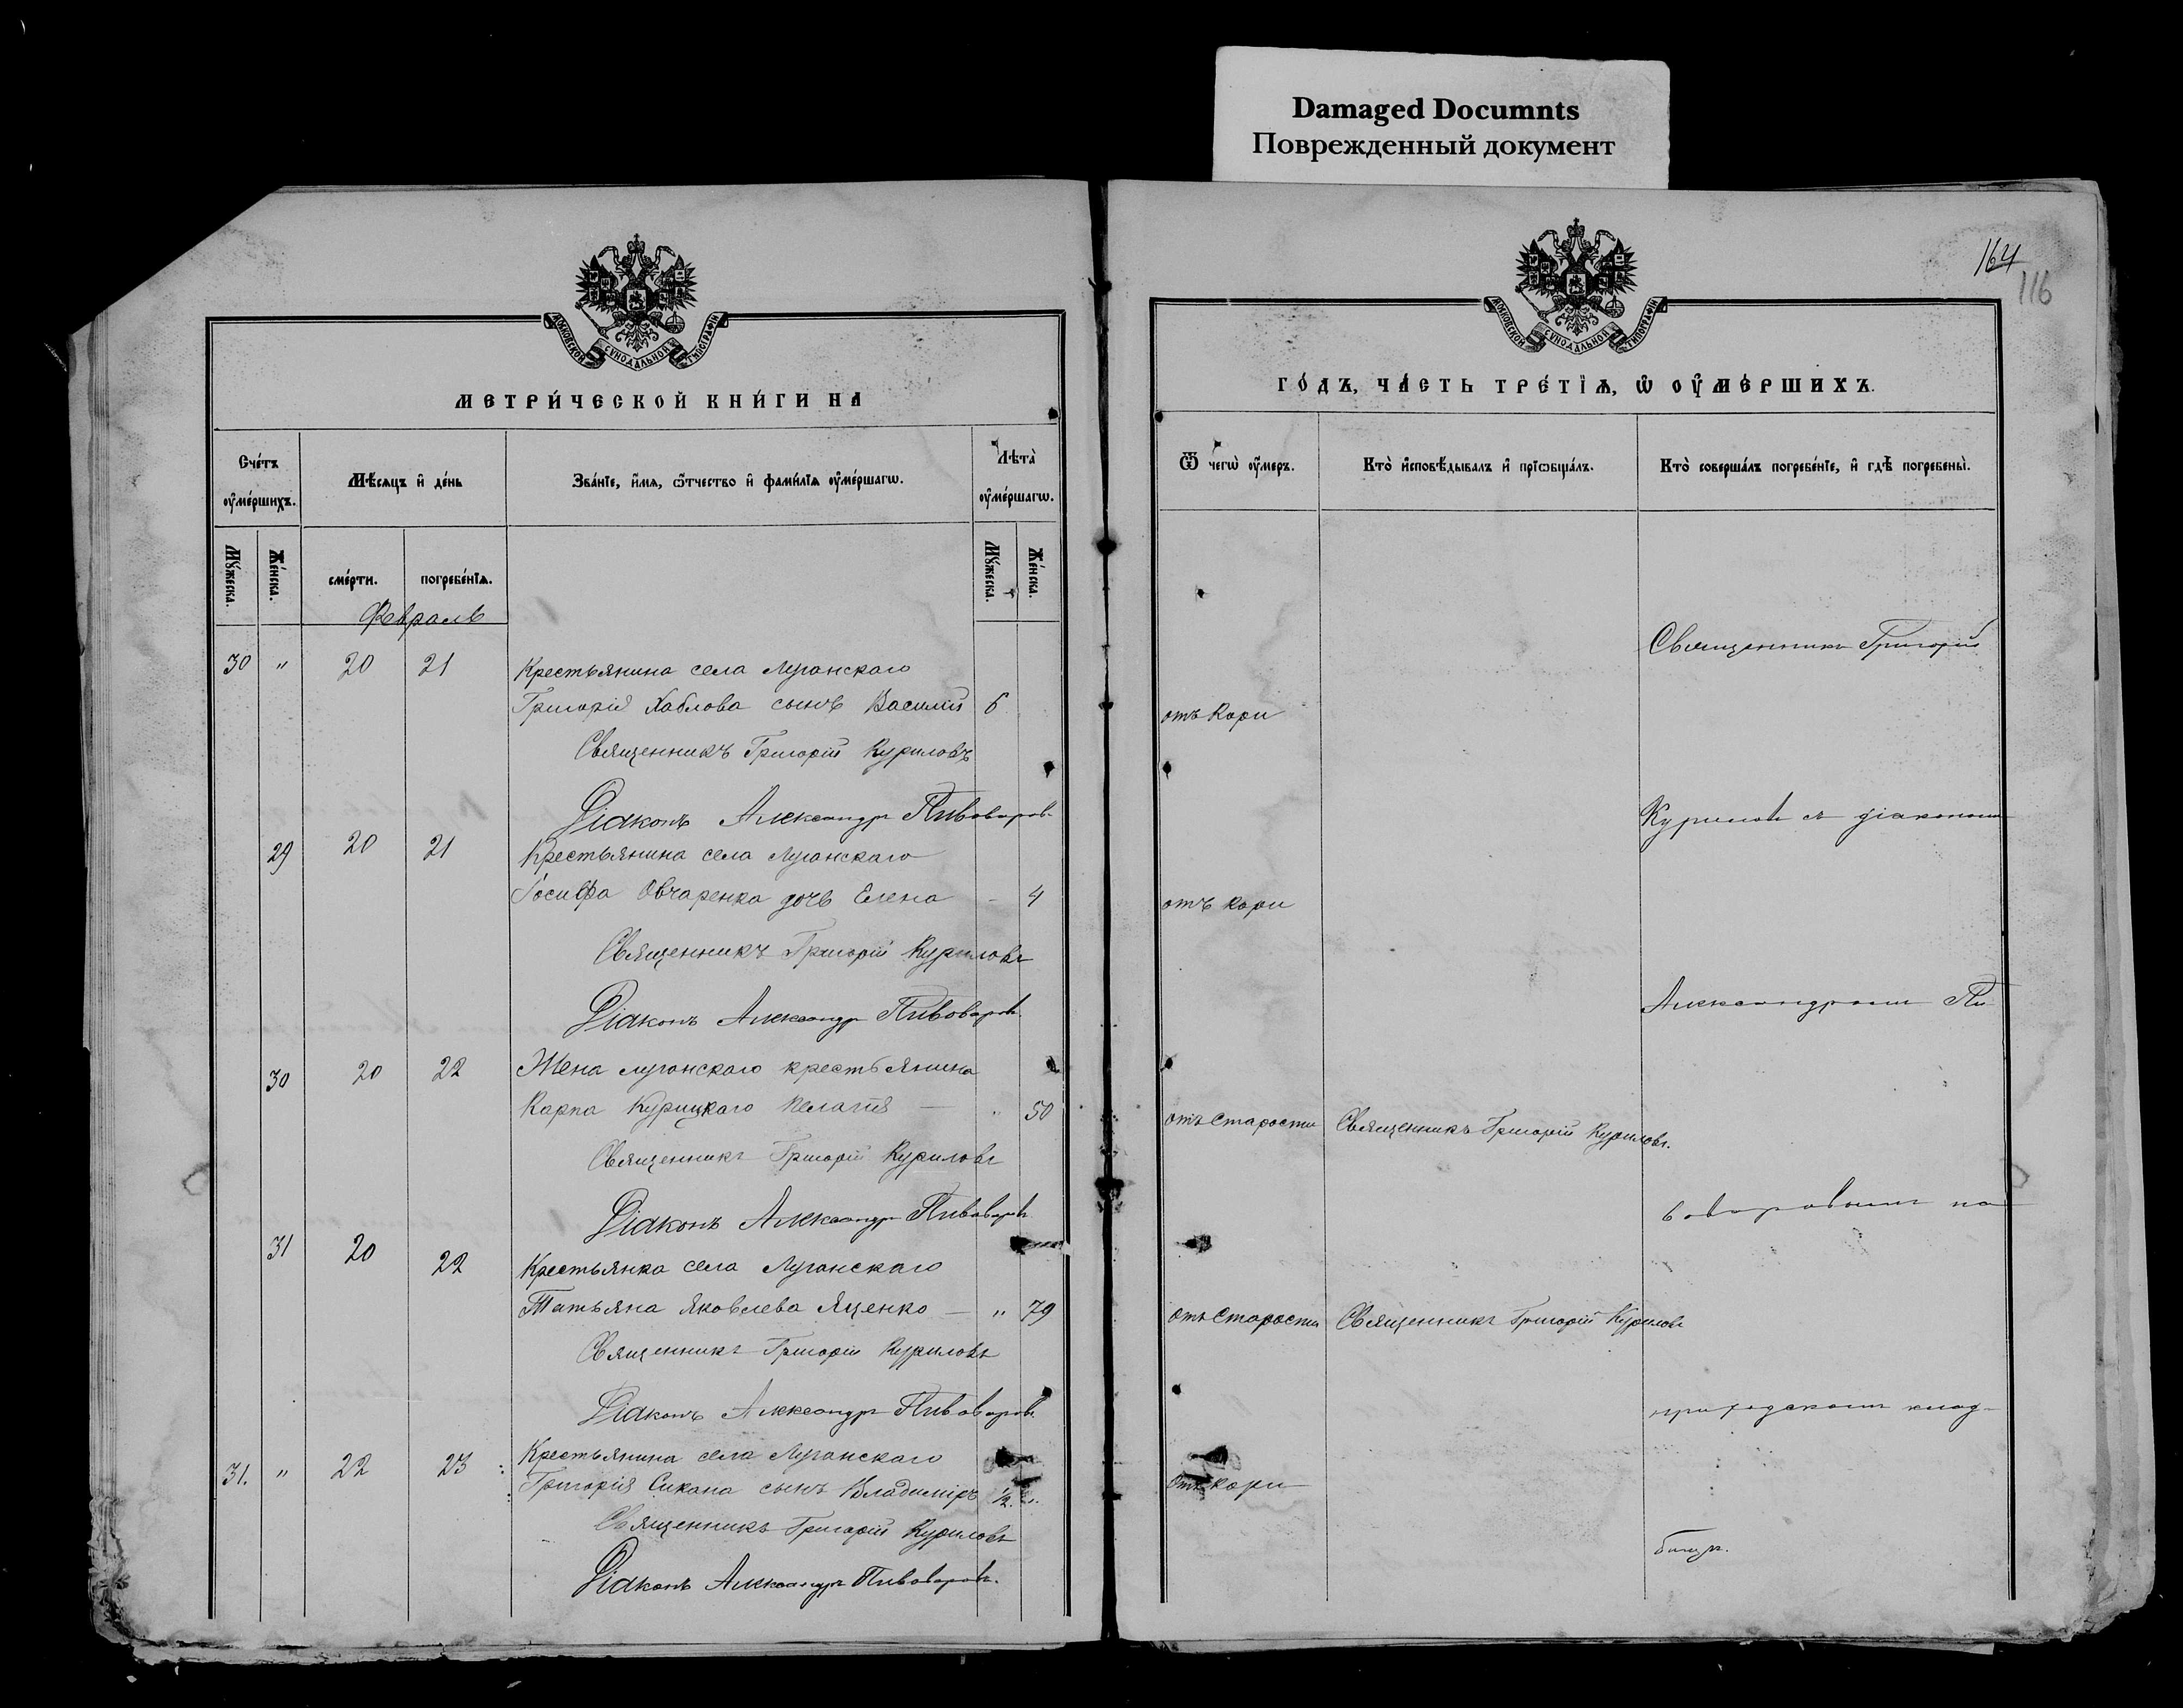 Damaged Documnts
Поврежденный документ
164
116
МОСКОВСКОЙ СѴНОДАЛЬНОЙ ТИПОГРАФІИ
МЕТРИ́ЧЕСКОЙ КНИ́ГИ НА
Сче́тъ ᲂу҆ме́ршихъ.
Мѣ́сяцъ и҆ де́нь
Зва́нїе, и҆́мя, ѻ҆́тчество и҆ фами́лїя ᲂу҆ме́ршагѡ.
Лѣ́та ᲂу҆ме́ршагѡ.
Мꙋ́жеска.
Же́нска.
сме́рти.
погребе́нїѧ.
Мꙋ́жеска.
Же́нска.
Февраль
30 " 20 21 Крестьянина села Луганскаго
Григорія Хаблова сынъ Василій 6
Священникъ Григорій Куриловъ
Діаконъ Александр Пивоваров
29 20 21 Крестьянина села Луганскаго
Іосифа Овчаренка дочь Елена - 4
Священникъ Григорій Куриловъ
Діаконъ Александр Пивоваров
30 20 22 Жена луганскаго крестьянина
Карпа Курицкаго Пелагія — 50
Священникъ Григорій Куриловъ
Діаконъ Александр Пивоваров
31 20 22 Крестьянка села Луганскаго
Татьяна Яковлева Яценко — " 79
Священникъ Григорій Куриловъ
Діаконъ Александр Пивоваров
31. " 22 23 Крестьянина села Луганскаго
Григорія Сикана сынъ Владиміръ 1/2. "
Священникъ Григорій Куриловъ
Діаконъ Александръ Пивоваров.
МОСКОВСКОЙ СѴНОДАЛЬНОЙ ТИПОГРАФІИ
ГО́ДЪ, ЧА́СТЬ ТРЕ́ТЇѦ, Ѡ҆ ОУ҆МЕ́РШИХЪ.
Ѿ чегѡ̀ ᲂу҆́меръ.
Кто̀ и҆сповѣ́дывалъ и҆ прїѡбща́лъ.
Кто̀ соверша́лъ погребе́нїе, и҆ гдѣ̀ погребены̀.
Священникъ Григорій
отъ кори
Куриловъ съ діакономъ
отъ кори
Александромъ Пи-
отъ старости Священникъ Григорій Куриловъ.
воваровымъ на
отъ старости Священникъ Григорій Куриловъ
приходскомъ клад-
отъ кори
бищѣ.